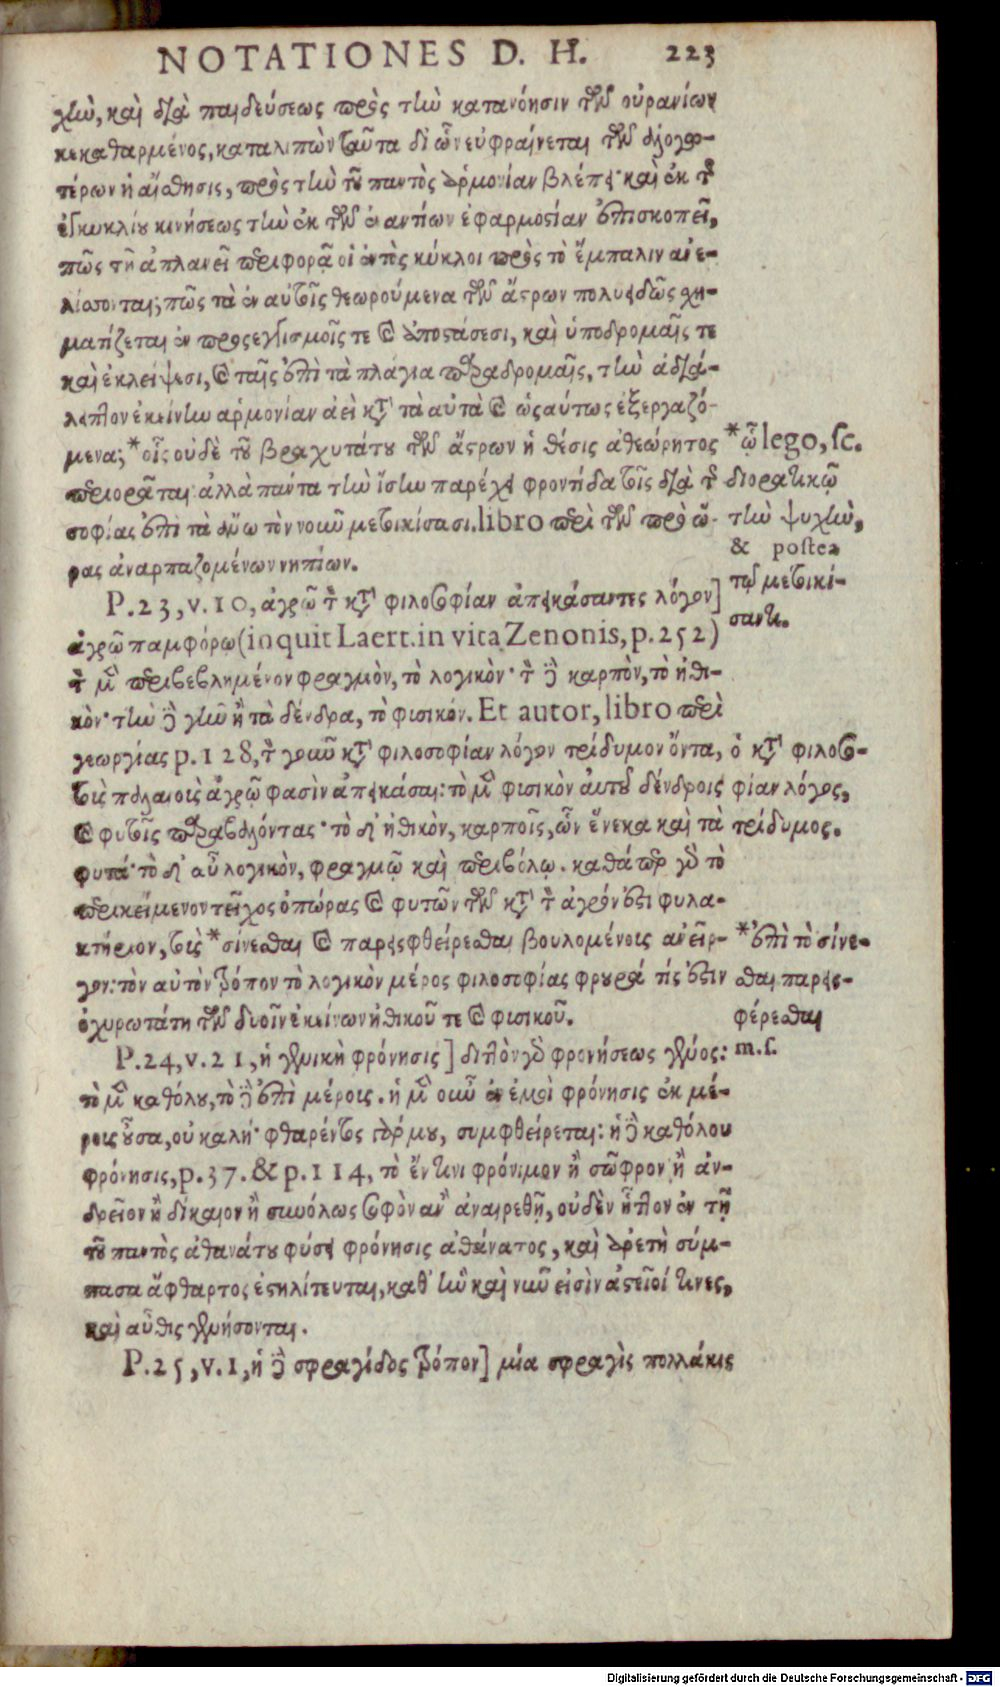 NOTATIONES D. H. 223
χὴν, καὶ διὰ παιδεύσεως πρὸς τὴν κατανόησιν τῶν οὐρανίων
κεκαθαρμένος, καταλιπὼν ταῦτα δι' ὧν εὐφραίνεται τῶν ὀλιγω-
τέρων ἡ αἴσθησις, πρὸς τὴν τοῦ παντὸς ἁρμονίαν βλέπει· καὶ ἐκ τῆς
ἐγκυκλίου κινήσεως τὴν ἐκ τῶν ἐναντίων ἐφαρμοστίαν ἐπισκοπεῖ,
πῶς τῇ ἀπλανεῖ περιφορᾷ οἱ ἐντὸς κύκλοι πρὸς τὸ ἔμπαλιν ἀνε-
λίσσονται; πῶς τὰ ἐν αὐτοῖς θεωρούμενα τῶν ἄστρων πολυειδῶς χη-
ματίζεται ἐν προσεγγισμοῖς τε καὶ ἀποστάσεσι, καὶ ὑποδρομαῖς τε
καὶ ἐκλείψεσι, καὶ ταῖς ἐπὶ τὰ πλάγια παραδρομαῖς, τὴν ἀδιά-
λειπτον ἐκείνην ἁρμονίαν ἀεὶ κατὰ τὰ αὐτὰ καὶ ὡσαύτως ἐξεργαζό-
μενα; *οἷς οὐδὲ τοῦ βραχυτάτου τῶν ἄστρων ἡ θέσις ἀθεώρητος
περιορᾶται· ἀλλὰ πάντα τὴν ἴσην παρέχει φροντίδα τοῖς διὰ τῆς
σοφίας ἐπὶ τὰ ἄνω τὸν νοῦν μετοικίσασι. libro περὶ τῶν πρὸ ὥ-
ρας ἀναρπαζομένων νηπίων.
*ᾧ lego, sc.
διορατικῷ
τὴν ψυχὴν,
& postea
τῷ μετοικί-
σαντι.
P. 23, v. 10, ἀγρῷ τὸν κατὰ φιλοσοφίαν ἀπεικάσαντες λόγον]
ἀγρῷ παμφόρῳ (inquit Laert. in vita Zenonis, p. 252)
τὸν μὲν περιβεβλημένον φραγμὸν, τὸ λογικὸν· τὸν δὲ καρπὸν, τὸ ἠθι-
κὸν· τὴν δὲ γῆν ἢ τὰ δένδρα, τὸ φισικόν. Et autor, libro περὶ
γεωργίας p. 128, τὸν γοῦν κατὰ φιλοσοφίαν λόγον τρίδυμον ὄντα,
τοὺς παλαιοὺς ἀγρῷ φασὶν ἀπεικάσαι: τὸ μὲν φισικὸν αὐτοῦ δένδροις
καὶ φυτοῖς παραβαλόντας· τὸ δ' ἠθικὸν, καρποῖς, ὧν ἕνεκα καὶ τὰ
φυτά· τὸ δ' αὖ λογικὸν, φραγμῷ καὶ περιβόλῳ. καθάπερ γὰρ τὸ
περικείμενον τεῖχος ὀπώρας καὶ φυτῶν τῶν κατὰ τὸν ἀγρόν ἐστι φυλα-
κτήριον, τοὺς *σίνεσθαι καὶ παρεισφθείρεσθαι βουλομένοις ἀνεῖρ-
γον: τὸν αὐτὸν τρόπον τὸ λογικὸν μέρος φιλοσοφίας φρουρά τίς ἐστιν
ὀχυρωτάτη τῶν δυοῖν ἐκείνων ἠθικοῦ τε καὶ φισικοῦ.
ὁ κατὰ φιλοσο-
φίαν λόγος,
τρίδυμος.
*ἐπὶ τὸ σίνε-
σθαι παρεισ-
φέρεσθαι
m. s.
P. 24, v. 21, ἡ γενικὴ φρόνησις] διττὸν γὰρ φρονήσεως γένος:
τὸ μὲν καθόλου, τὸ δὲ ἐπὶ μέροις. ἡ μὲν οὖν ἐν ἐμοὶ φρόνησις ἐκ μέ-
ροις οὖσα, οὐ καλή· φθαρέντος γάρ μου, συμφθείρεται: ἡ δὲ καθόλου
φρόνησις, p. 37. & p. 114, τὸ ἔν τινι φρόνιμον ἢ σῶφρον ἢ ἀν-
δρεῖον ἢ δίκαιον ἢ συνόλως σοφὸν ἂν ἀναιρεθῇ, οὐδὲν ἧττον ἐν τῇ
τοῦ παντὸς ἀθανάτου φύσει φρόνησις ἀθάνατος, καὶ ἀρετὴ σύμ-
πασα ἄφθαρτος ἐστηλίτευται, καθ' ἣν καὶ νῦν εἰσὶν ἀστεῖοί τινες,
καὶ αὖθις γενήσονται.
P. 25, v. 1, ἡ δὲ σφραγίδος τρόπον] μία σφραγὶς πολλάκις
Digitalisierung gefördert durch die Deutsche Forschungsgemeinschaft - DFG